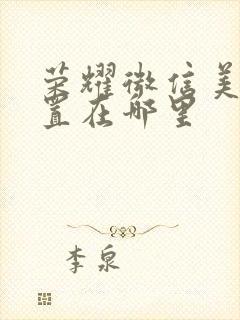 荣耀微信美
置在哪里
李泉